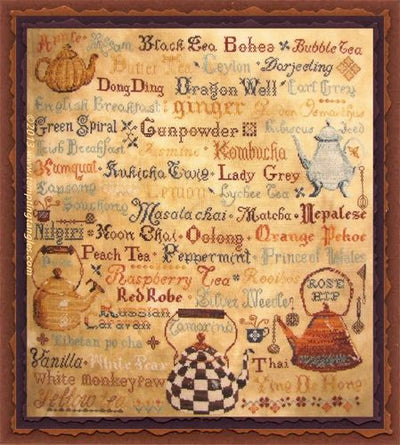 Apple Assam Black Tea Bohea Bubble Tea
Butter Tea Ceylon Darjeeling
Dong Ding Dragon Well Earl Grey
English Breakfast ginger Golden Osmanthus
Green Spiral Gunpowder Hibiscus Iced
Irish Breakfast Jasmine Kombucha
Kumquat Kukicha Twig Lady Grey
Lapsang Lemon Lychee Tea
Souchong Masala chai Matcha Nepalese
Nilgiri Noon Chai Oolong Orange Pekoe
Peach Tea Peppermint Prince of Wales
Raspberry Tea Rooibos
Red Robe Silver Needles ROSE HIP
Russian Caravan Tamarind
Tibetan po cha
Vanilla White Pear Thai
white monkey paw Ying De Hong
Yellow tea